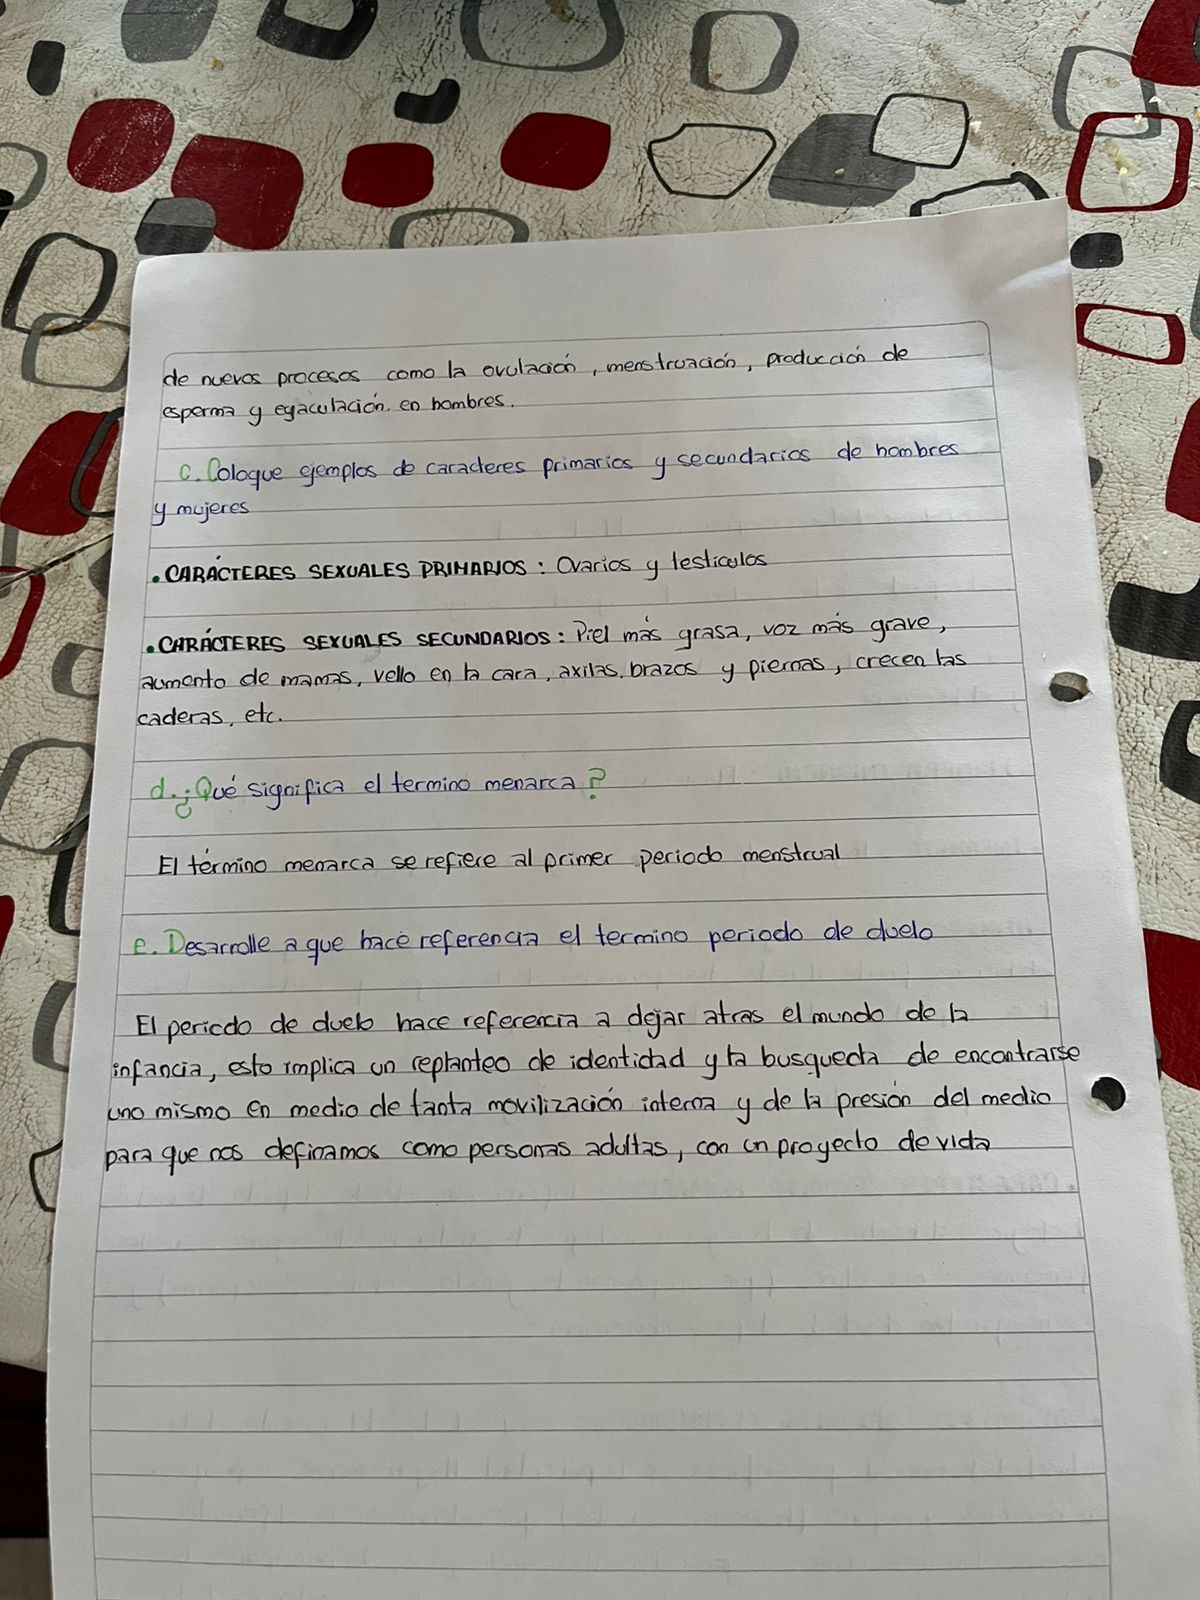 de nuevos procesos como la ovulación, menstruación, producción de
esperma y eyaculación en hombres.
c. Coloque ejemplos de caracteres primarios y secundarios de hombres
y mujeres
• CARÁCTERES SEXUALES PRIMARIOS: Ovarios y testiculos
• CARÁCTERES SEXUALES SECUNDARIOS: Piel más grasa, voz más grave,
aumento de mamas, vello en la cara, axilas, brazos y piernas, crecen las
caderas, etc.
d. ¿Qué significa el termino menarca?
El término menarca se refiere al primer periodo menstrual
e. Desarrolle a que hace referencia el termino periodo de duelo
El periodo de duelo hace referencia a dejar atras el mundo de la
infancia, esto implica un replanteo de identidad y la busqueda de encontrarse
uno mismo en medio de tanta movilización interna y de la presión del medio
para que nos definamos como personas adultas, con un proyecto de vida